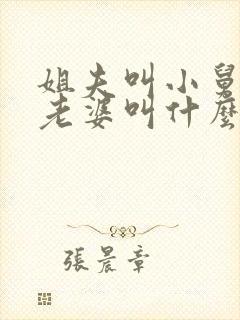 姐夫叫小舅
老婆叫什麼
張晨章